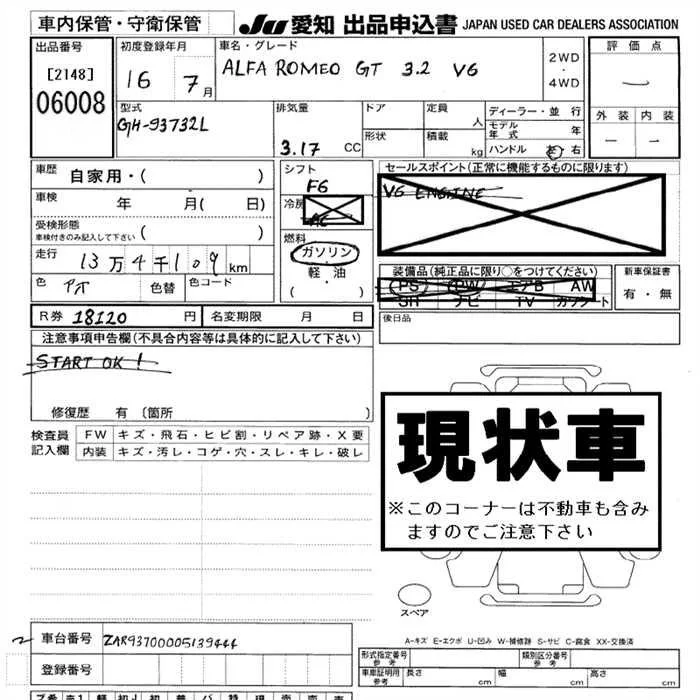 車内保管・守衛保管 JU 愛知 出品申込書 JAPAN USED CAR DEALERS ASSOCIATION
出品番号 初度登録年月 車名・グレード 2WD ・ 4WD 評価点
[2148] 16 7月 ALFA ROMEO GT 3.2 V6 一
06008
型式 排気量 ドア 定員 ディーラー・並行 外装 内装
GH-93732L 3.17 CC 人 モデル年式 年 一 一
形状 積載 kg ハンドル 左 右
車歴 自家用・( ) シフト セールスポイント(正常に機能するものに限ります)
F6
車検 年 月( 日) 冷房 AC V6 ENGINE
受検形態 ( )
車検付きのみ記入して下さい
燃料
走行 13万4千109km ガソリン 装備品(純正品に限り○をつけてください) 新車保証書
軽・油 PS PW エアB AW 有・無
色 色替 色コード ( ) SR ナビ TV カワシート
R券 18120円 名変期限 月 日 後日品
注意事項申告欄(不具合内容等は具体的に記入して下さい)
START OK!
修復歴 有(箇所 )
検査員 FW キズ・飛石・ヒビ割・リペア跡・X要
記入欄 内装 キズ・汚レ・コゲ・穴・スレ・キレ・破レ
現状車
※このコーナーは不動車も含み
ますのでご注意下さい
スペア
A-キズ E-エクボ U-凹み W-補修跡 S-サビ C-腐食 XX-交換済
車台番号 ZAR93700005139444
登録番号
形式指定番号 参考 類別区分番号 参考
車庫証明用 参考 長さ cm 幅 cm 高さ cm